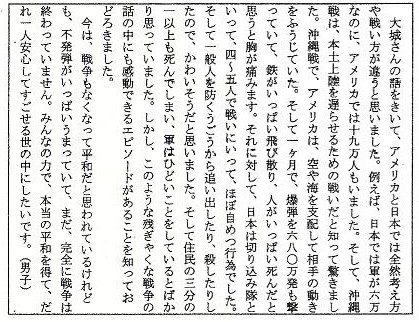 大城さんの話をきいて、アメリカと日本では全然考え方
や戦い方が違うと思いました。例えば、日本では軍が六万
なのに、アメリカでは十九万人もいました。そして、沖縄
戦は、本土上陸を遅らせるための戦いだと知って驚きまし
た。沖縄戦で、アメリカは、空や海を支配して相手の動き
をふうじていた。そして一ヶ月で、爆弾を六八〇万発も撃
っていて、鉄がいっぱい飛び散り、人がいっぱい死んだと
思うと胸が痛みます。それに対して、日本は切り込み隊と
いって、四〜五人で戦いにいって、ほぼ自めつ行為でした。
そして一般人を防くうごうから追い出したり、殺したりし
たので、かわいそうだと思いました。そして住民の三分の
一以上も死んでしまい、軍はひどいことをしているとばか
り思っていました。しかし、このような残ぎゃくな戦争の
話の中にも感動できるエピソードがあることを知ってお
どろきました。
今は、戦争もなくなって平和だと思われているけれど
も、不発弾がいっぱいうまっていて、まだ、完全に戦争は
終わっていません。みんなの力で、本当の平和を得て、だ
れ一人安心してすごせる世の中にしたいです。（男子）